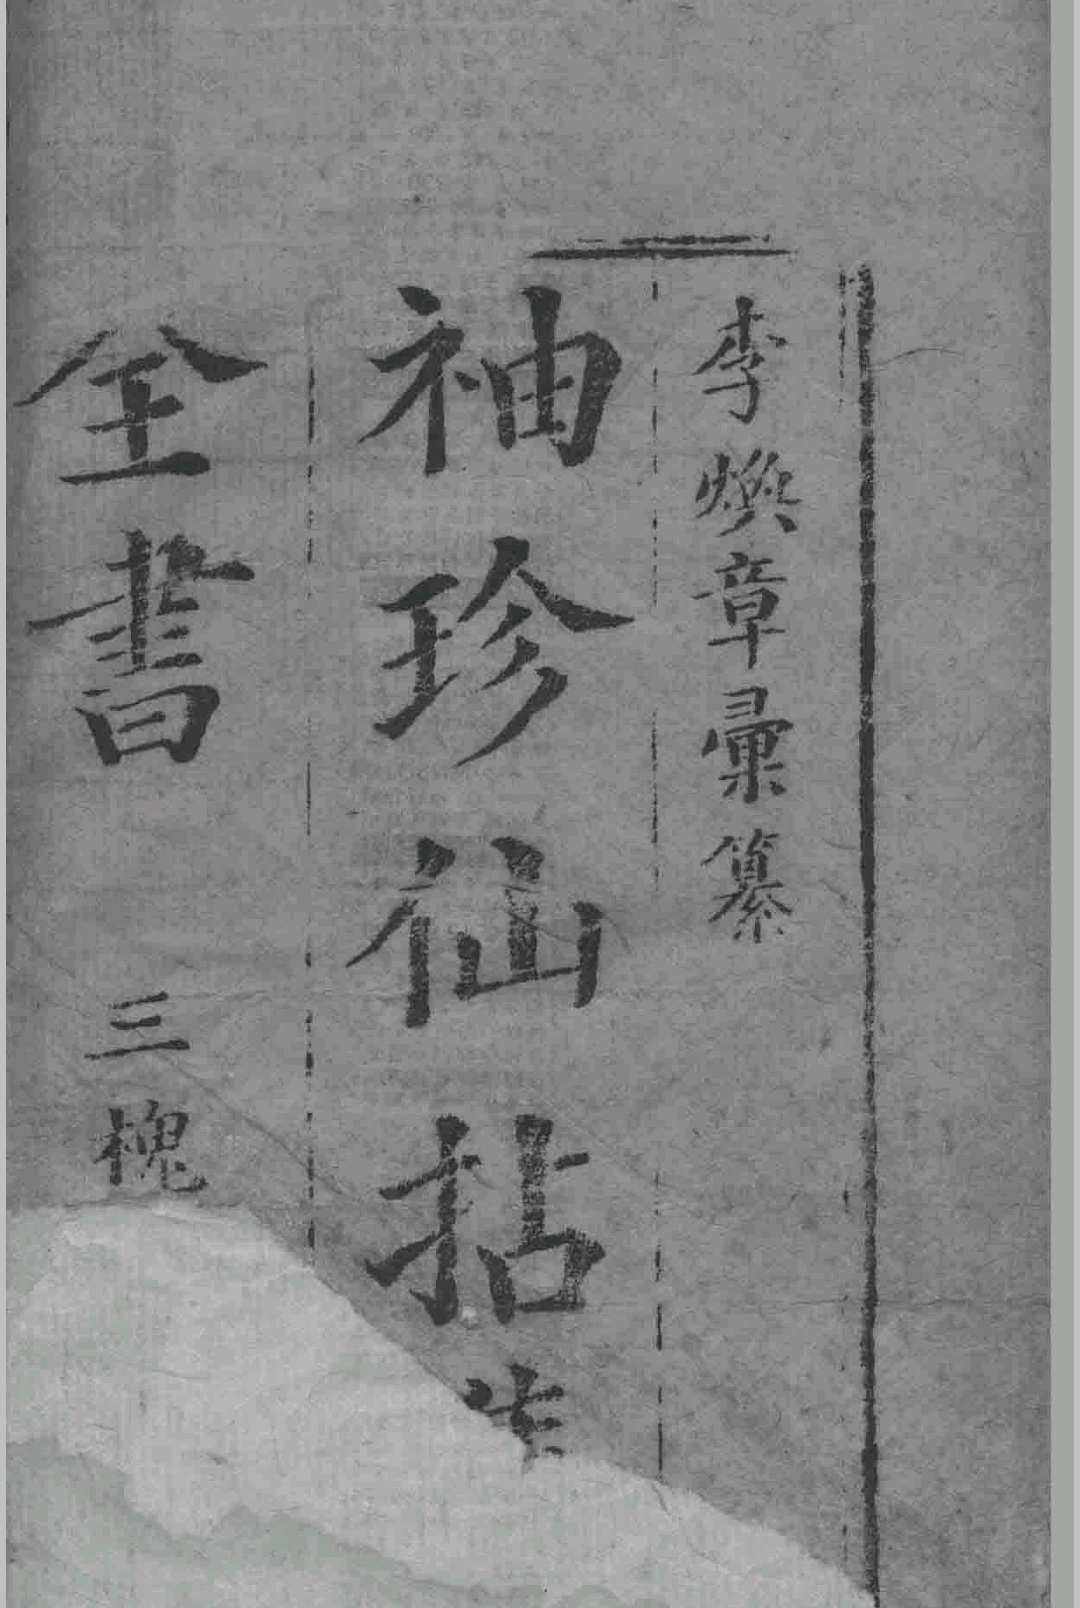 李煥章彙纂
袖珍仙拈
全書 三槐